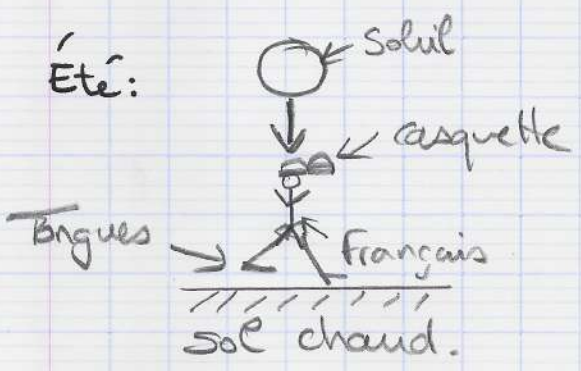 Soleil
Été:
casquette
Tongues
Français
Sol chaud.